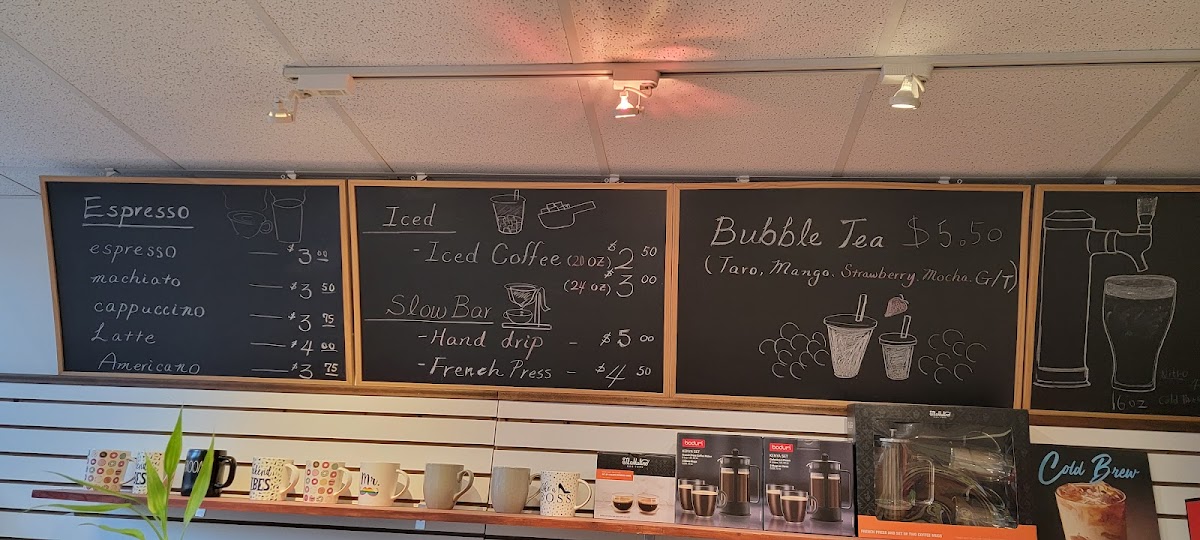 Espresso
espresso — $3 00
machiato — $3 50
cappuccino — $3 75
Latte — $4 00
Americano — $3 75
Iced
- Iced Coffee (20 oz) $2 50
(24 oz) $3 00
Slow Bar
- Hand drip - $5 00
- French Press - $4 50
Bubble Tea $5.50
(Taro, Mango, Strawberry, Mocha, G/T)
Nitro
16oz Cold Brew
bodum
bodum
Cold Brew
Mr.
BOSS